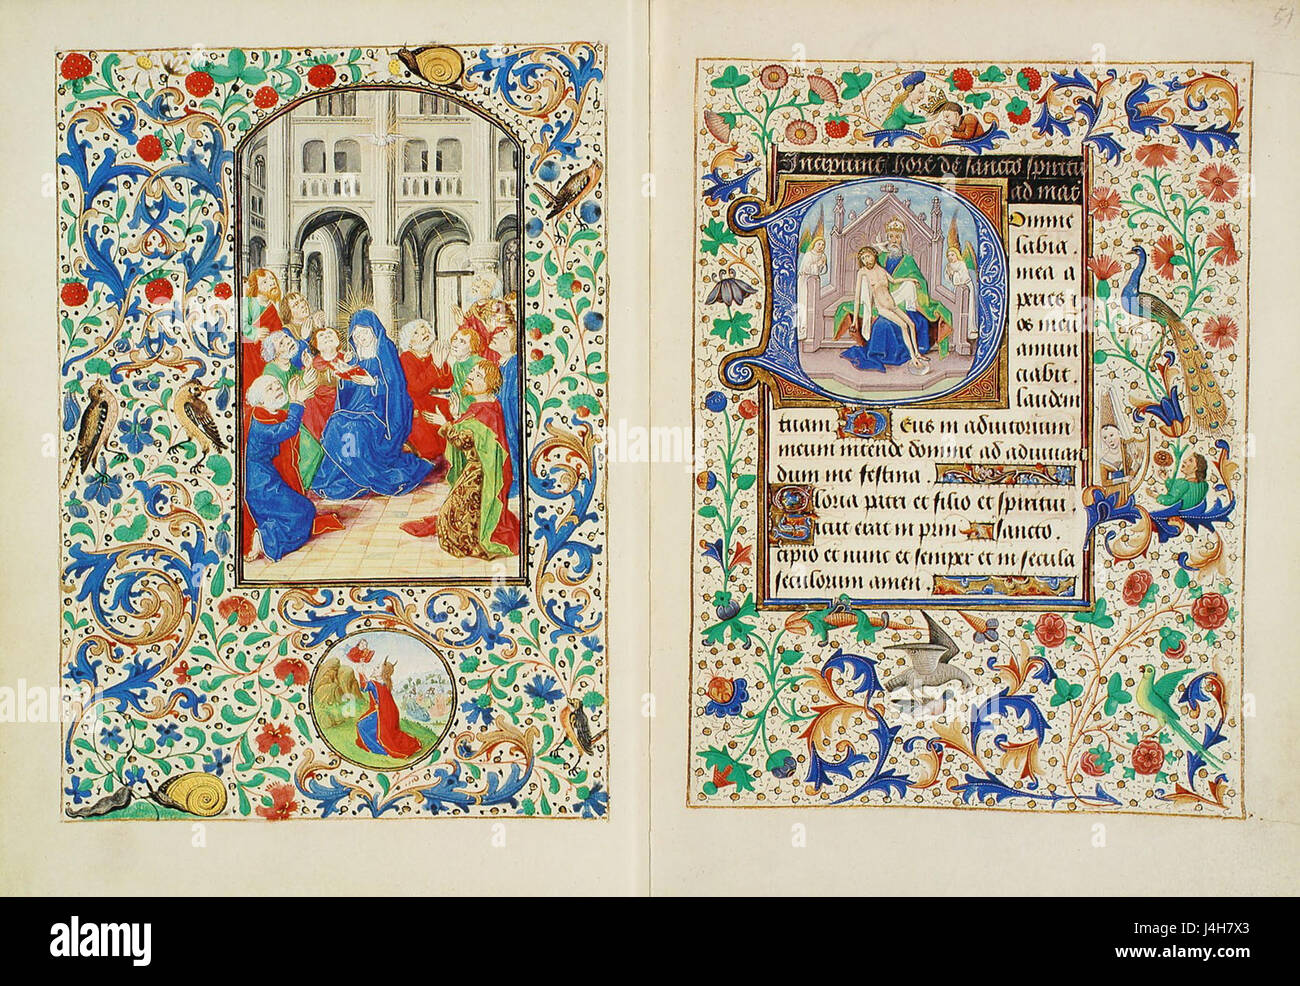 51
Incipiunt hore de sancto spiritu
ad mat
Domine
labia.
mea a
peries ⁊
os meū
annun
ciabit.
laudem
tuam Deus in adiutorium
meum intende domine ad adiuuan
dum me festina.
Gloria patri et filio et spiritui.
Sicut erat in prin sancto.
cipio et nunc et semper et in secula
seculorum amen.
alamy stock photo
a
alamy
Image ID: J4H7X3
www.alamy.com